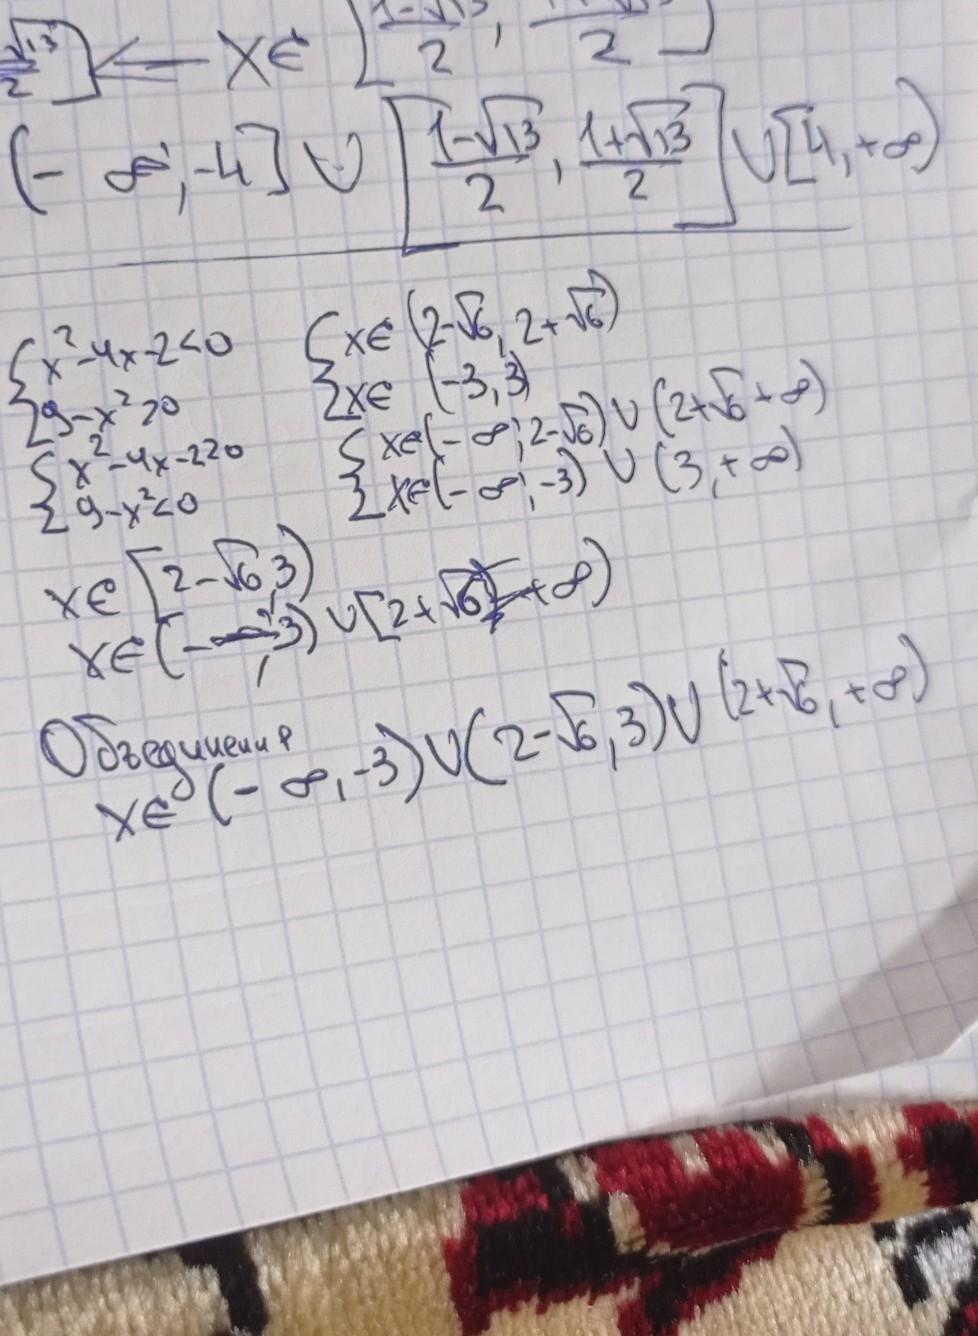 √13/2] ⟸ x∈ [1-√13/2, 1+√13/2]
(-∞,-4] ∪ [1-√13/2, 1+√13/2] ∪ [4,+∞)
{x²-4x-2<0 {x∈(2-√6, 2+√6)
{9-x²>0 {x∈ (-3,3)
{x²-4x-2≥0 {x∈(-∞;2-√6)∪(2+√6+∞)
{9-x²<0 {x∈(-∞,-3) ∪ (3,+∞)
x∈ [2-√6,3)
x∈(-∞,3) ∪[2+√6, +∞)
Объединения
x∈ (-∞,-3)∪(2-√6,3)∪(2+√6,+∞)